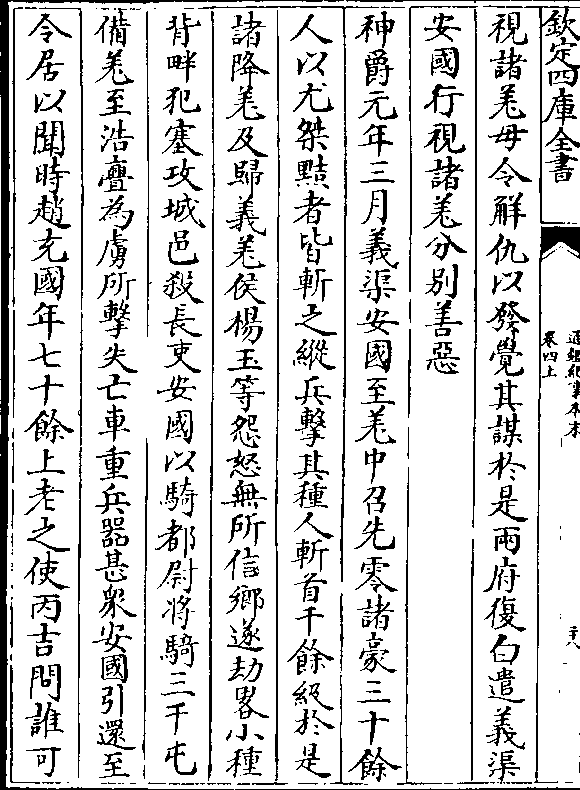 欽定四庫全書
通鑑紀事本末
卷四上
視諸羌毋令解仇以發覺其謀於是兩府復白遣義渠
安國行視諸羌分别善惡
神爵元年三月義渠安國至羌中召先零諸豪三十餘
人以尤桀黠者皆斬之縱兵擊其種人斬首千餘級於是
諸降羌及歸義羌侯楊玉等怨怒無所信鄉遂劫畧小種
背畔犯塞攻城邑殺長吏安國以騎都尉將騎三千屯
備羌至浩亹為虜所擊失亡車重兵器甚衆安國引還至
令居以聞時趙充國年七十餘上老之使丙吉問誰可